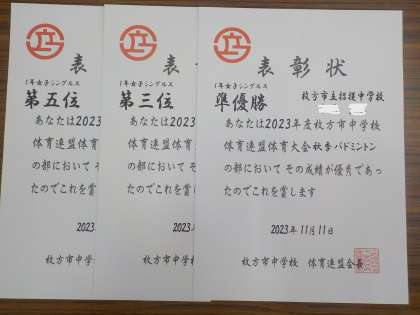 表
1年女子シングルス
第五位
あなたは2023
体育連盟体育
の部において そ
たのでこれを賞
2023
枚方市中学
表
1年女子シングルス
第三位
あなたは2023
体育連盟体育
の部において そ
たのでこれを賞
2023
枚方市中学校
表彰状
1年女子シングルス
準優勝
枚方市立招提中学校
あなたは2023年度枚方市中学校
体育連盟体育大会秋季バドミントン
の部において その成績が優秀であっ
たのでこれを賞します
2023年11月11日
枚方市中学校 体育連盟会長